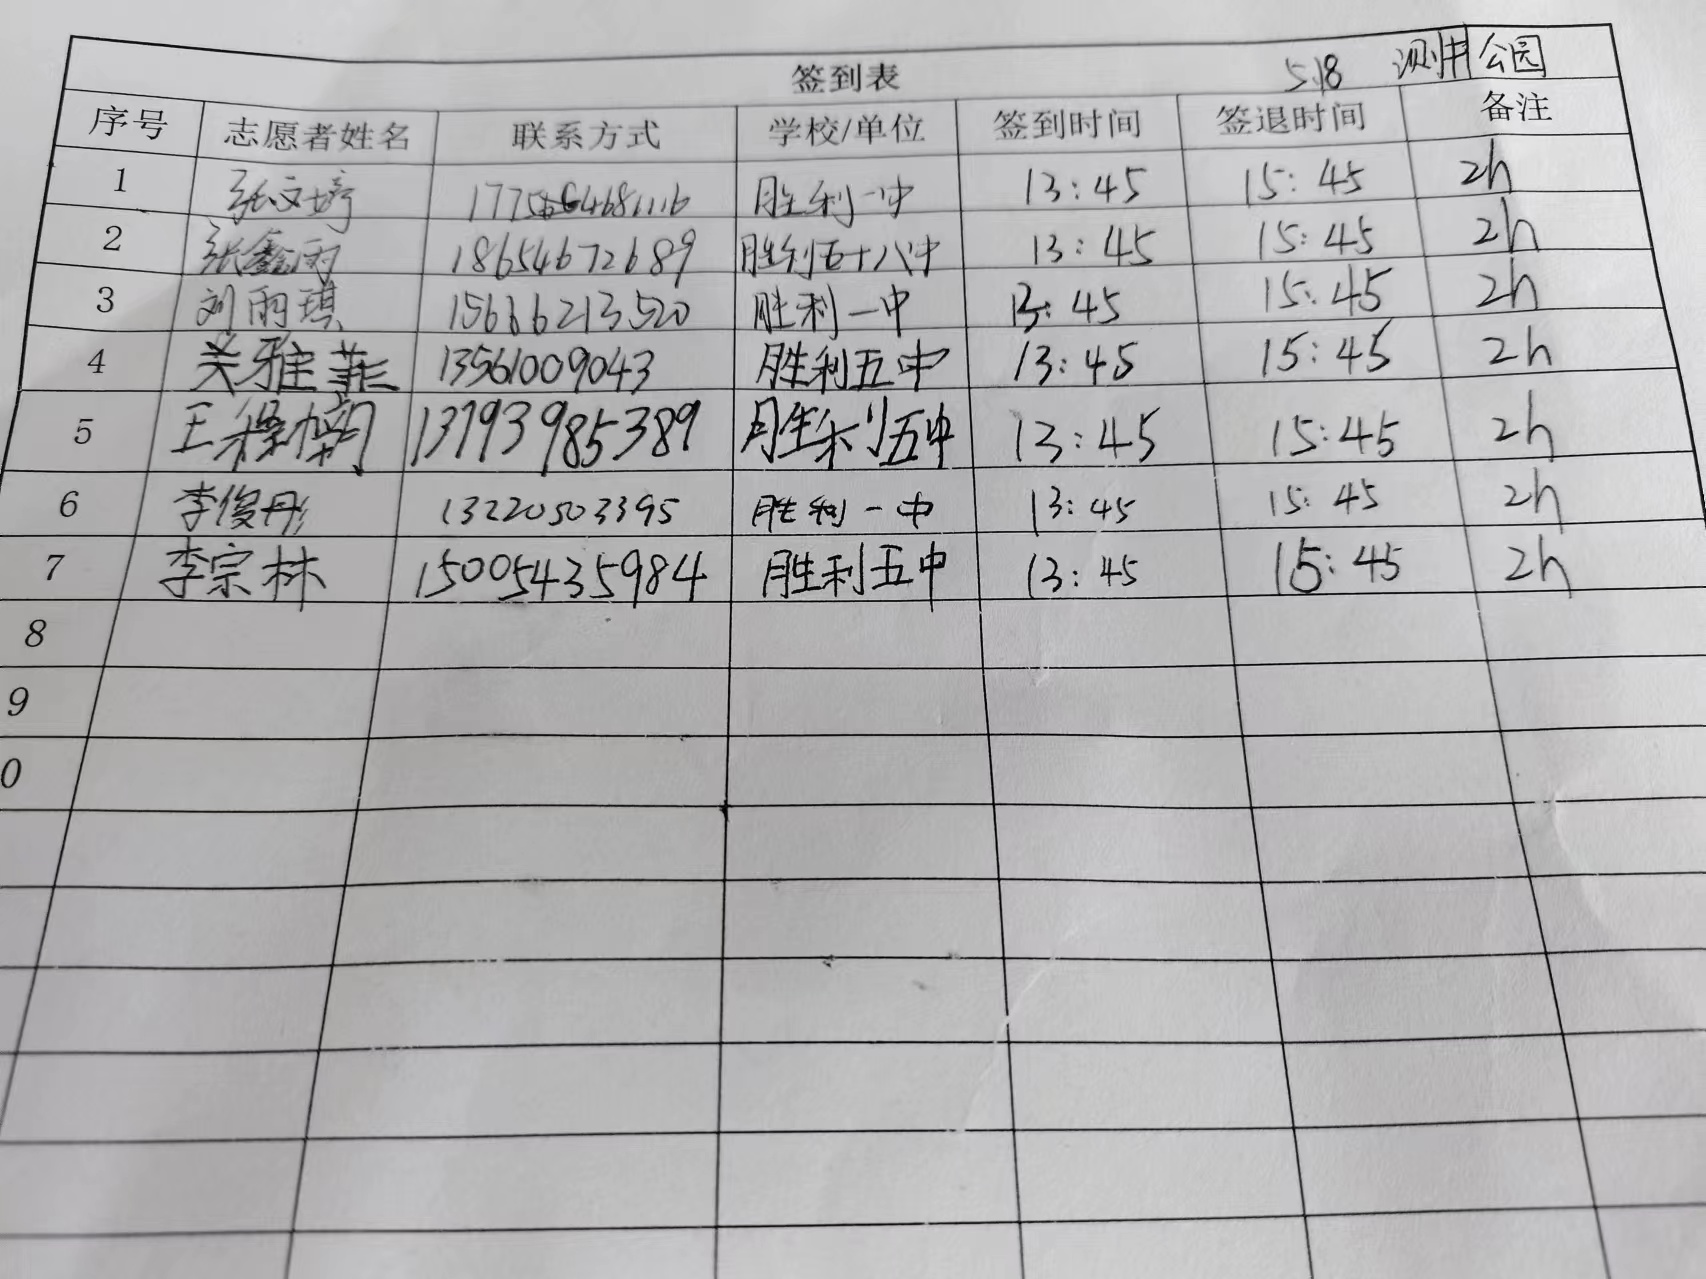 签到表 5.18 测井公园
序号 志愿者姓名 联系方式 学校/单位 签到时间 签退时间 备注
1 张文婷 胜利一中 13:45 15:45 2h
2 张鑫雨 18654672689 胜利五十八中 13:45 15:45 2h
3 刘雨琪 15666213520 胜利一中 13:45 15:45 2h
4 关雅菲 13561009043 胜利五中 13:45 15:45 2h
5 13793985389 胜利五中 13:45 15:45 2h
6 李俊彤 13220503395 胜利一中 13:45 15:45 2h
7 李宗林 15005435984 胜利五中 13:45 15:45 2h
8
9
0